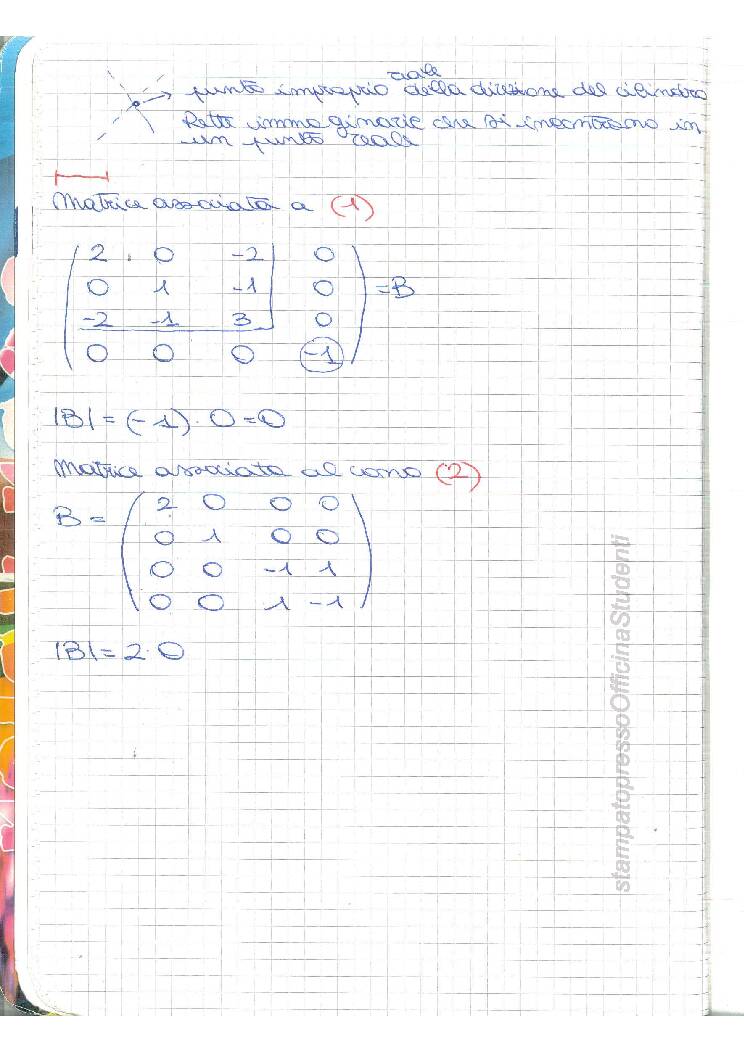 reale
punto improprio della direzione del cilindro
Rette immaginarie che si incontrano in
un punto reale
Matrice associata a (1)
2 0 -2 0
0 1 -1 0
-2 -1 3 0
0 0 0 -1
=B
|B| = (-1) · 0 = 0
Matrice associata al cono (2)
B =
2 0 0 0
0 1 0 0
0 0 -1 1
0 0 1 -1
|B| = 2 · 0
stampatopressoOfficinaStudenti